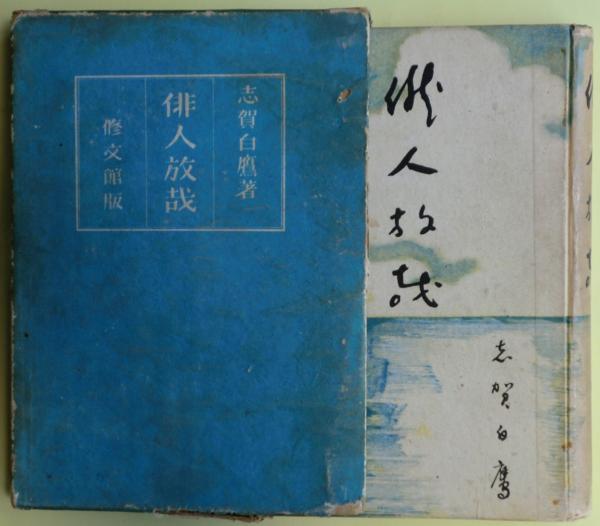 志賀白鷹著
俳人放哉
修文館版
俳人放哉
志賀白鷹
俳人放哉